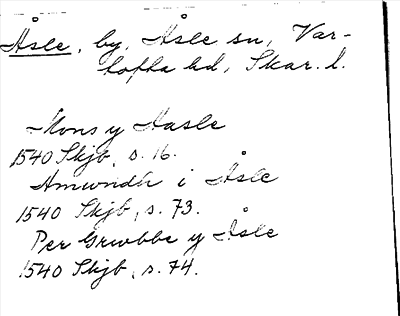 Åsle, by, Åsle sn, Var-
tofta hd, Skar. l.
Mons y Aasle
1540 Skjb, s. 16.
Amundh i Åsle
1540 Skjb, s. 73.
Per Grubbe y Åsle
1540 Skjb, s. 74.